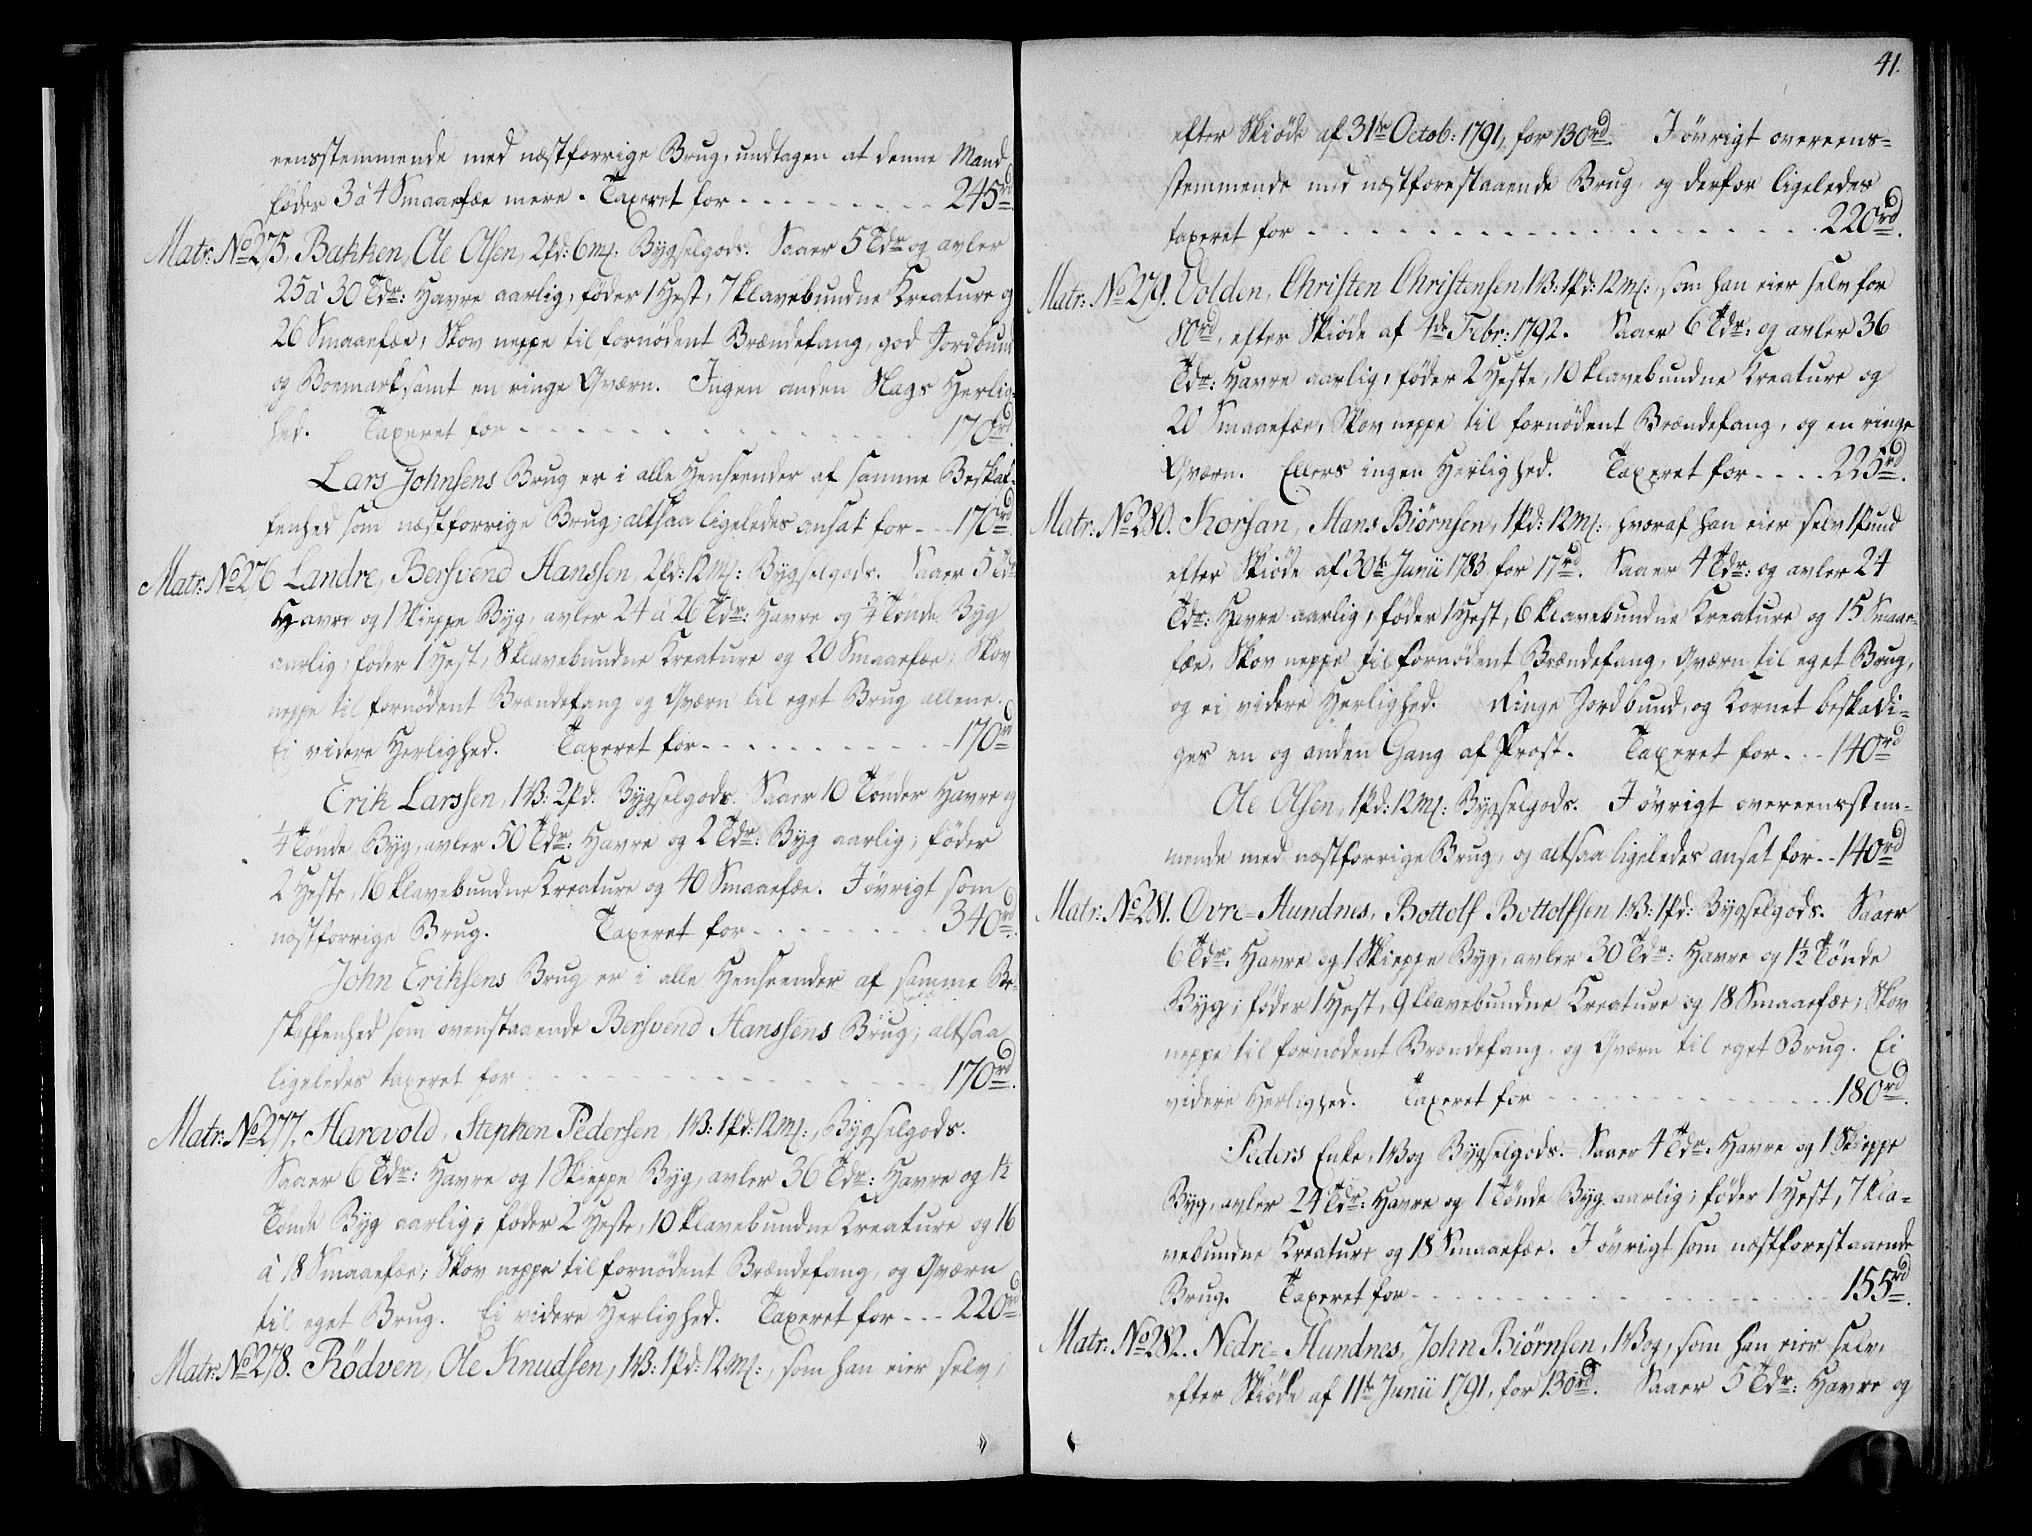 eensstemmende med næstforrige Brug, undtagen at denne Mand
føder 3 à 4 Smaaefæe mere. Taxeret for - - - - - - - - - 245rd.
Matr: No 275, Bakken, Ole Olsen, 2pd: 6mk. Bygselgods. Saaer 5 Tdr og avler
25 à 30 Tdr: Havre aarlig, føder 1 Hest, 7 klavebundne Kreature og
26 Smaaefæe, Skov neppe til fornødent Brændefang, god Jordbund
og Boemark, samt en ringe Qværn. Ingen anden Slags Herlig-
hed. Taxeret for - - - - - - - - - - - - - - - 170rd.
Lars Johnsens Brug er i alle Henseender af samme Beskaf-
fenhed som næstforrige Brug; altsaa ligeledes ansat for - - 170rd.
Matr: No 276 Landre, Bersvend Hanssen, 2pd: 12mk: Bygselgods. Saaer 5 Tdr
Havre og 1 Skieppe Byg, avler 24 à 26 Tdr: Havre og 3/4 Tönde Byg
aarlig; føder 1 Hest, 8 klavebundne Kreature og 20 Smaaefæe; Skov
neppe til fornødent Brændefang og Qværn til eget Brug allene.
Ei videre Herlighed. Taxeret for - - - - - - - - - - - 170rd
Erik Larssen, 1V: 2pd: Bygselgods. Saaer 10 Tönder Havre og
1/4 Tönde Byg, avler 50 Tdr: Havre og 2 Tdr: Byg aarlig; föder
2 Heste, 16 klavebundne Kreature og 40 Smaaefæe. I øvrigt som
næstforrige Brug. Taxeret for - - - - - - - - 340rd.
John Eriksens Brug er i alle Henseender af samme Be-
skaffenhed som ovenstaaende Bersvend Hanssens Brug; altsaa
ligeledes taxeret for - - - - - - - - - - - - - - - 170rd.
Matr: No 277. Harevold, Stephen Pedersen, 1V: 1pd: 12mk:, Bygselgods.
Saaer 6 Tdr: Havre og 1 Skieppe Byg, avler 36 Tdr: Havre og 1 1/2
Tönde Byg aarlig; föder 2 Heste, 10 klavebundne Kreature og 16
à 18 Smaaefæe; Skov neppe til fornødent Brændefang, og Qværn
til eget Brug. Ei videre Herlighed. Taxeret for - - - 220rd
Matr: No 278. Rödven, Ole Knudsen, 1V: 1pd: 12mk:, som han eier selv,
41.
efter Skiöde af 31te Octob: 1791, for 130rd. I øvrigt overeens-
stemmende med næstforestaaende Brug, og derfor ligeledes
taxeret for - - - - - - - - - - - - - - - - - - 220rd.
Matr: No 279. Volden, Christen Christensen 1V: 1pd: 12mk:, som han eier selv for
80rd, efter Skiöde af 4de Febr: 1792. Saaer 6 Tdr: og avler 36
Tdr: Havre aarlig, föder 2 Heste, 10 klavebundne Kreature og
20 Smaaefæe, Skov neppe til fornødent Brændefang, og en ringe
Qværn. Ellers ingen Herlighed. Taxeret for - - - - 225rd.
Matr: No 280. Korsan, Hans Biørnsen, 1pd: 12mk:, hvoraf han eier selv 1 pund
efter Skiöde af 30te Junii 1783 for 17rd. Saaer 4 Tdr: og avler 24
Tdr: Havre aarlig, föder 1 Hest, 6 klavebundne Kreature og 15 Smaae-
fæe, Skov neppe til fornødent Brændefang, Qværn til eget Brug,
og ei videre Herlighed. Ringe Jordbund, og Kornet beskadi-
ges en og anden Gang af Frost. Taxeret for - - - 140rd
Ole Olsen, 1pd: 12mk: Bygselgods. I øvrigt overeensstem-
mende med næstforrige Brug, og altsaa ligeledes ansat for - - 140rd
Matr: No 281. Övre-Hundnes, Bottolf Bottolfsen 1V: 1pd: Bygselgods. Saaer
6 Tdr. Havre og 1 Skieppe Byg, avler 30 Tdr: Havre og 1 1/2 Tönde
Byg; föder 1 Hest, 9 klavebundne Kreature og 18 Smaaefæe; Skov
neppe til fornødent Brændefang, og Qværn til eget Brug. Ei
videre Herlighed. Taxeret for - - - - - - - - - - 180rd.
Peders Enke, 1Vog Bygselgods. Saaer 4 Tdr. Havre og 1 Skieppe
Byg, avler 24 Tdr: Havre og 1 Tönde Byg aarlig; föder 1 Hest, 7 kla-
vebundne Kreature og 18 Smaaefæe. I øvrigt som næstforestaaende
Brug. Taxeret for - - - - - - - - - - - - - - - 155rd.
Matr: No 282. Nedre-Hundnes, John Biörnsen, 1Vog, som han eier selv,
efter Skiöde af 11te Junii 1791, for 130rd. Saaer 5 Tdr: Havre og